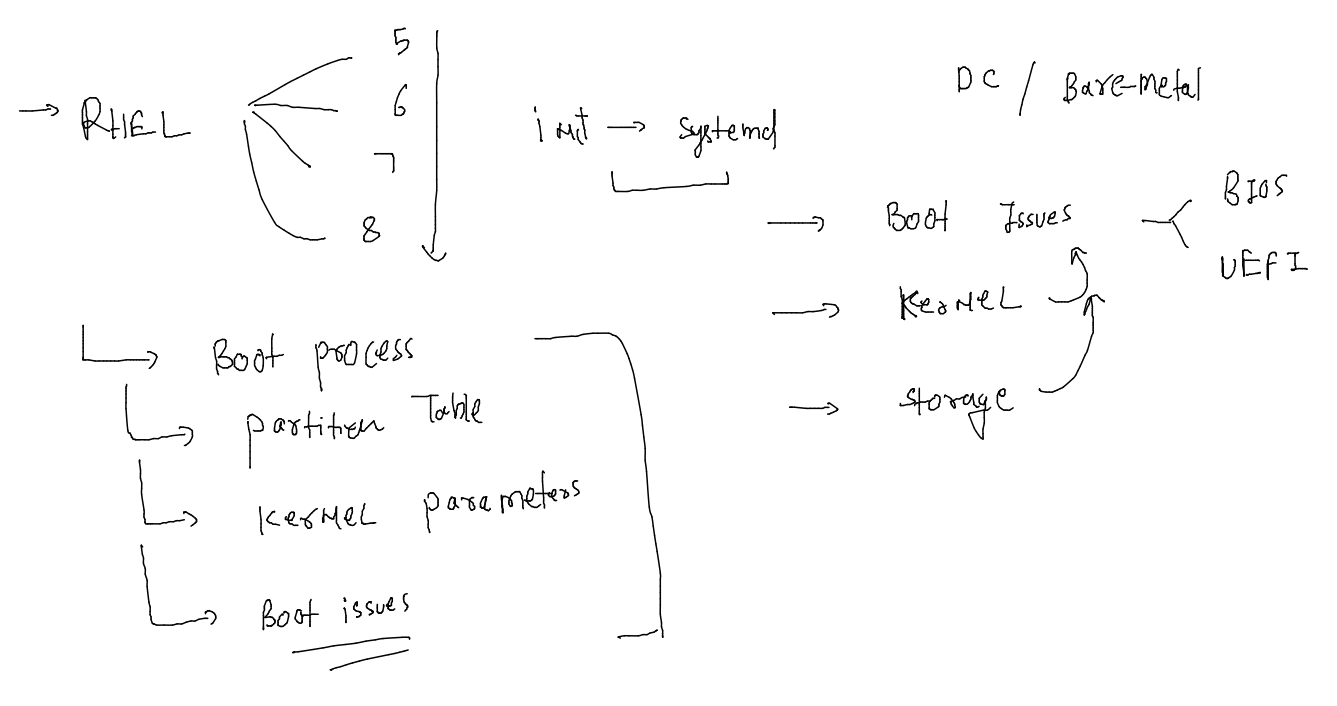 → RHEL
5
6
7
8
init → systemd
DC / Bare-metal
→ Boot Issues
BIOS
UEFI
→ Kernel
→ storage
→ Boot process
→ partition Table
→ Kernel parameters
→ Boot issues